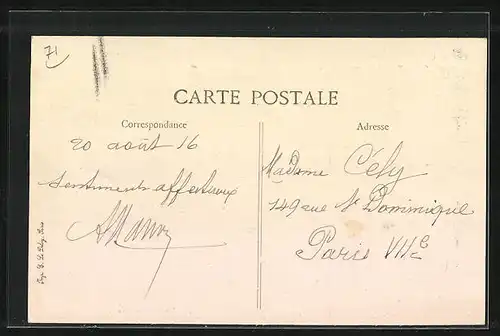 71
CARTE POSTALE
Correspondance
Adresse
20 août 16
Sentiments affectueux
Madame Cély
149 rue St Dominique
Paris VIIe